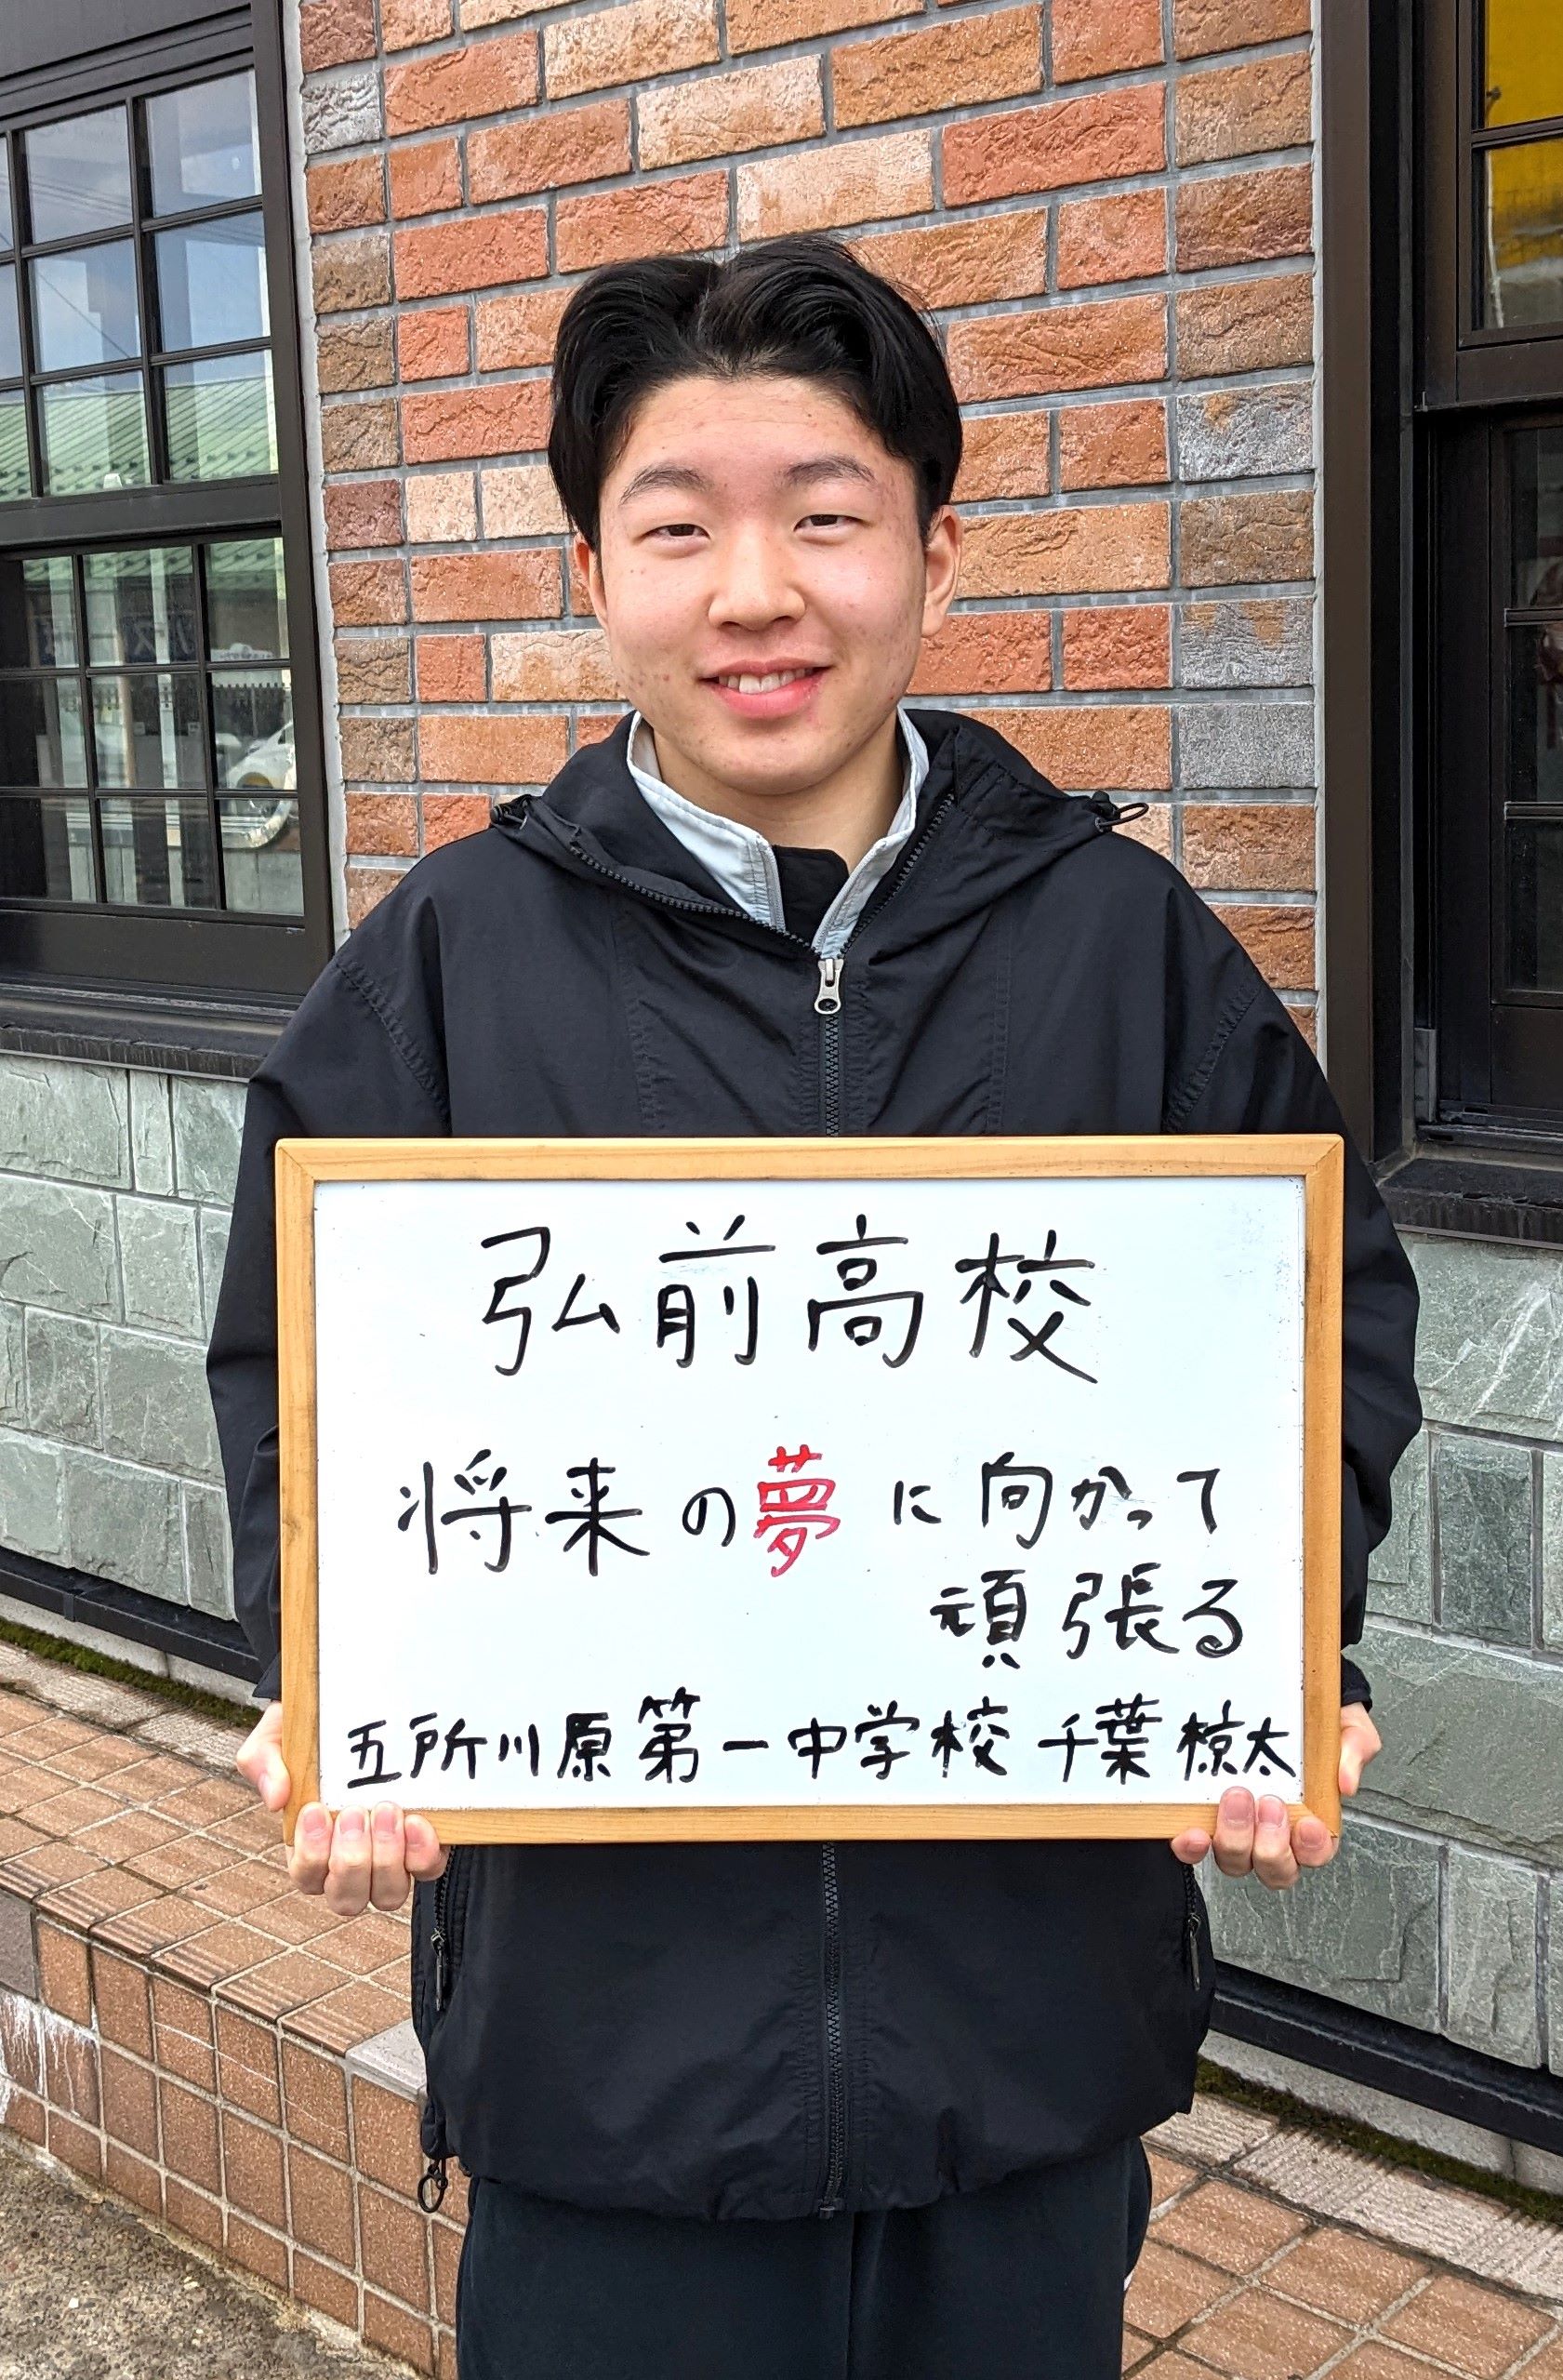 弘前高校
将来の夢に向かって
頑張る
五所川原第一中学校 千葉 椋太